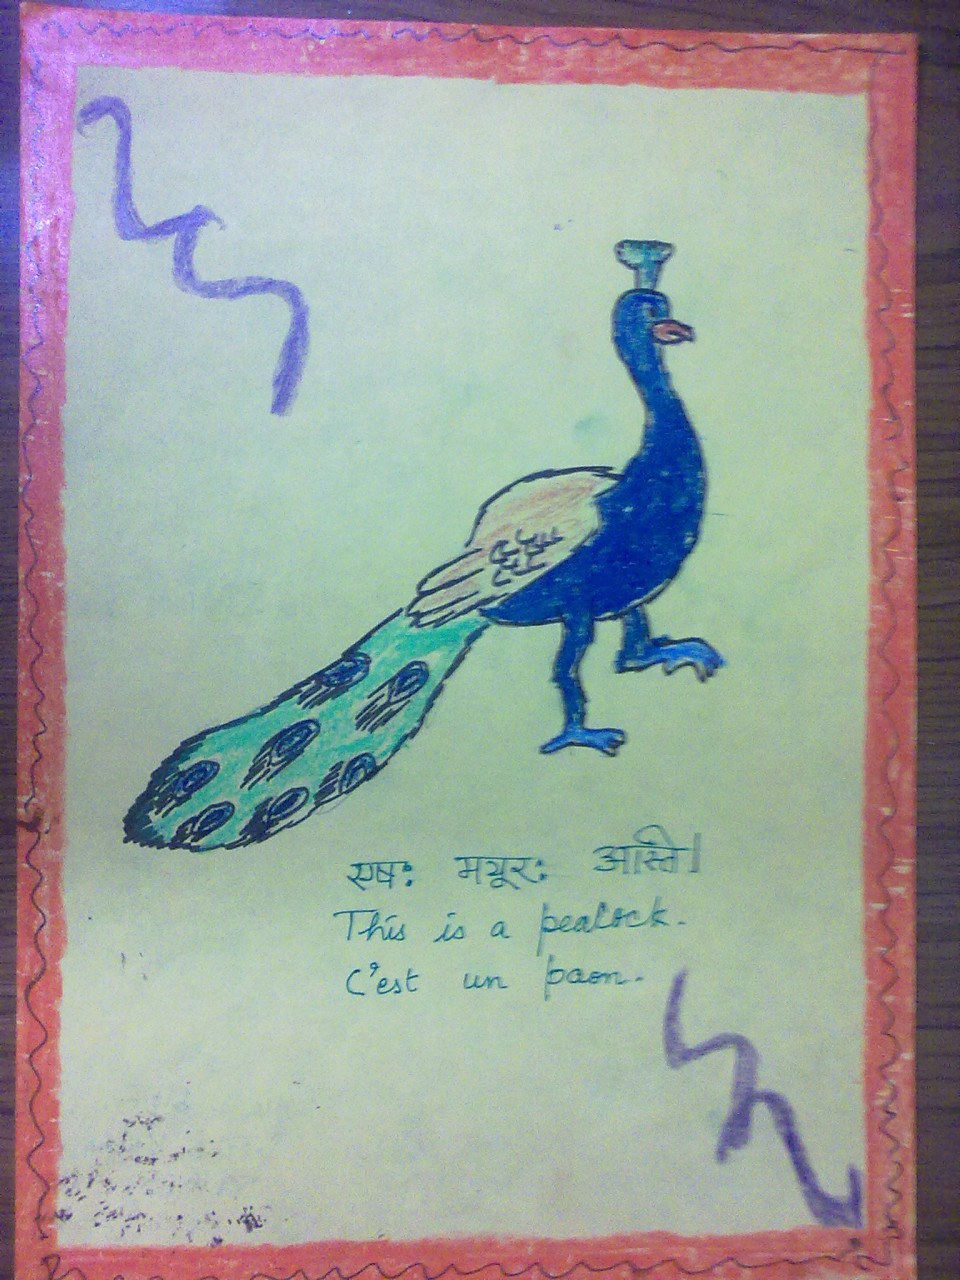 एषः मयूरः आस्ते।
This is a peacock.
C'est un paon.